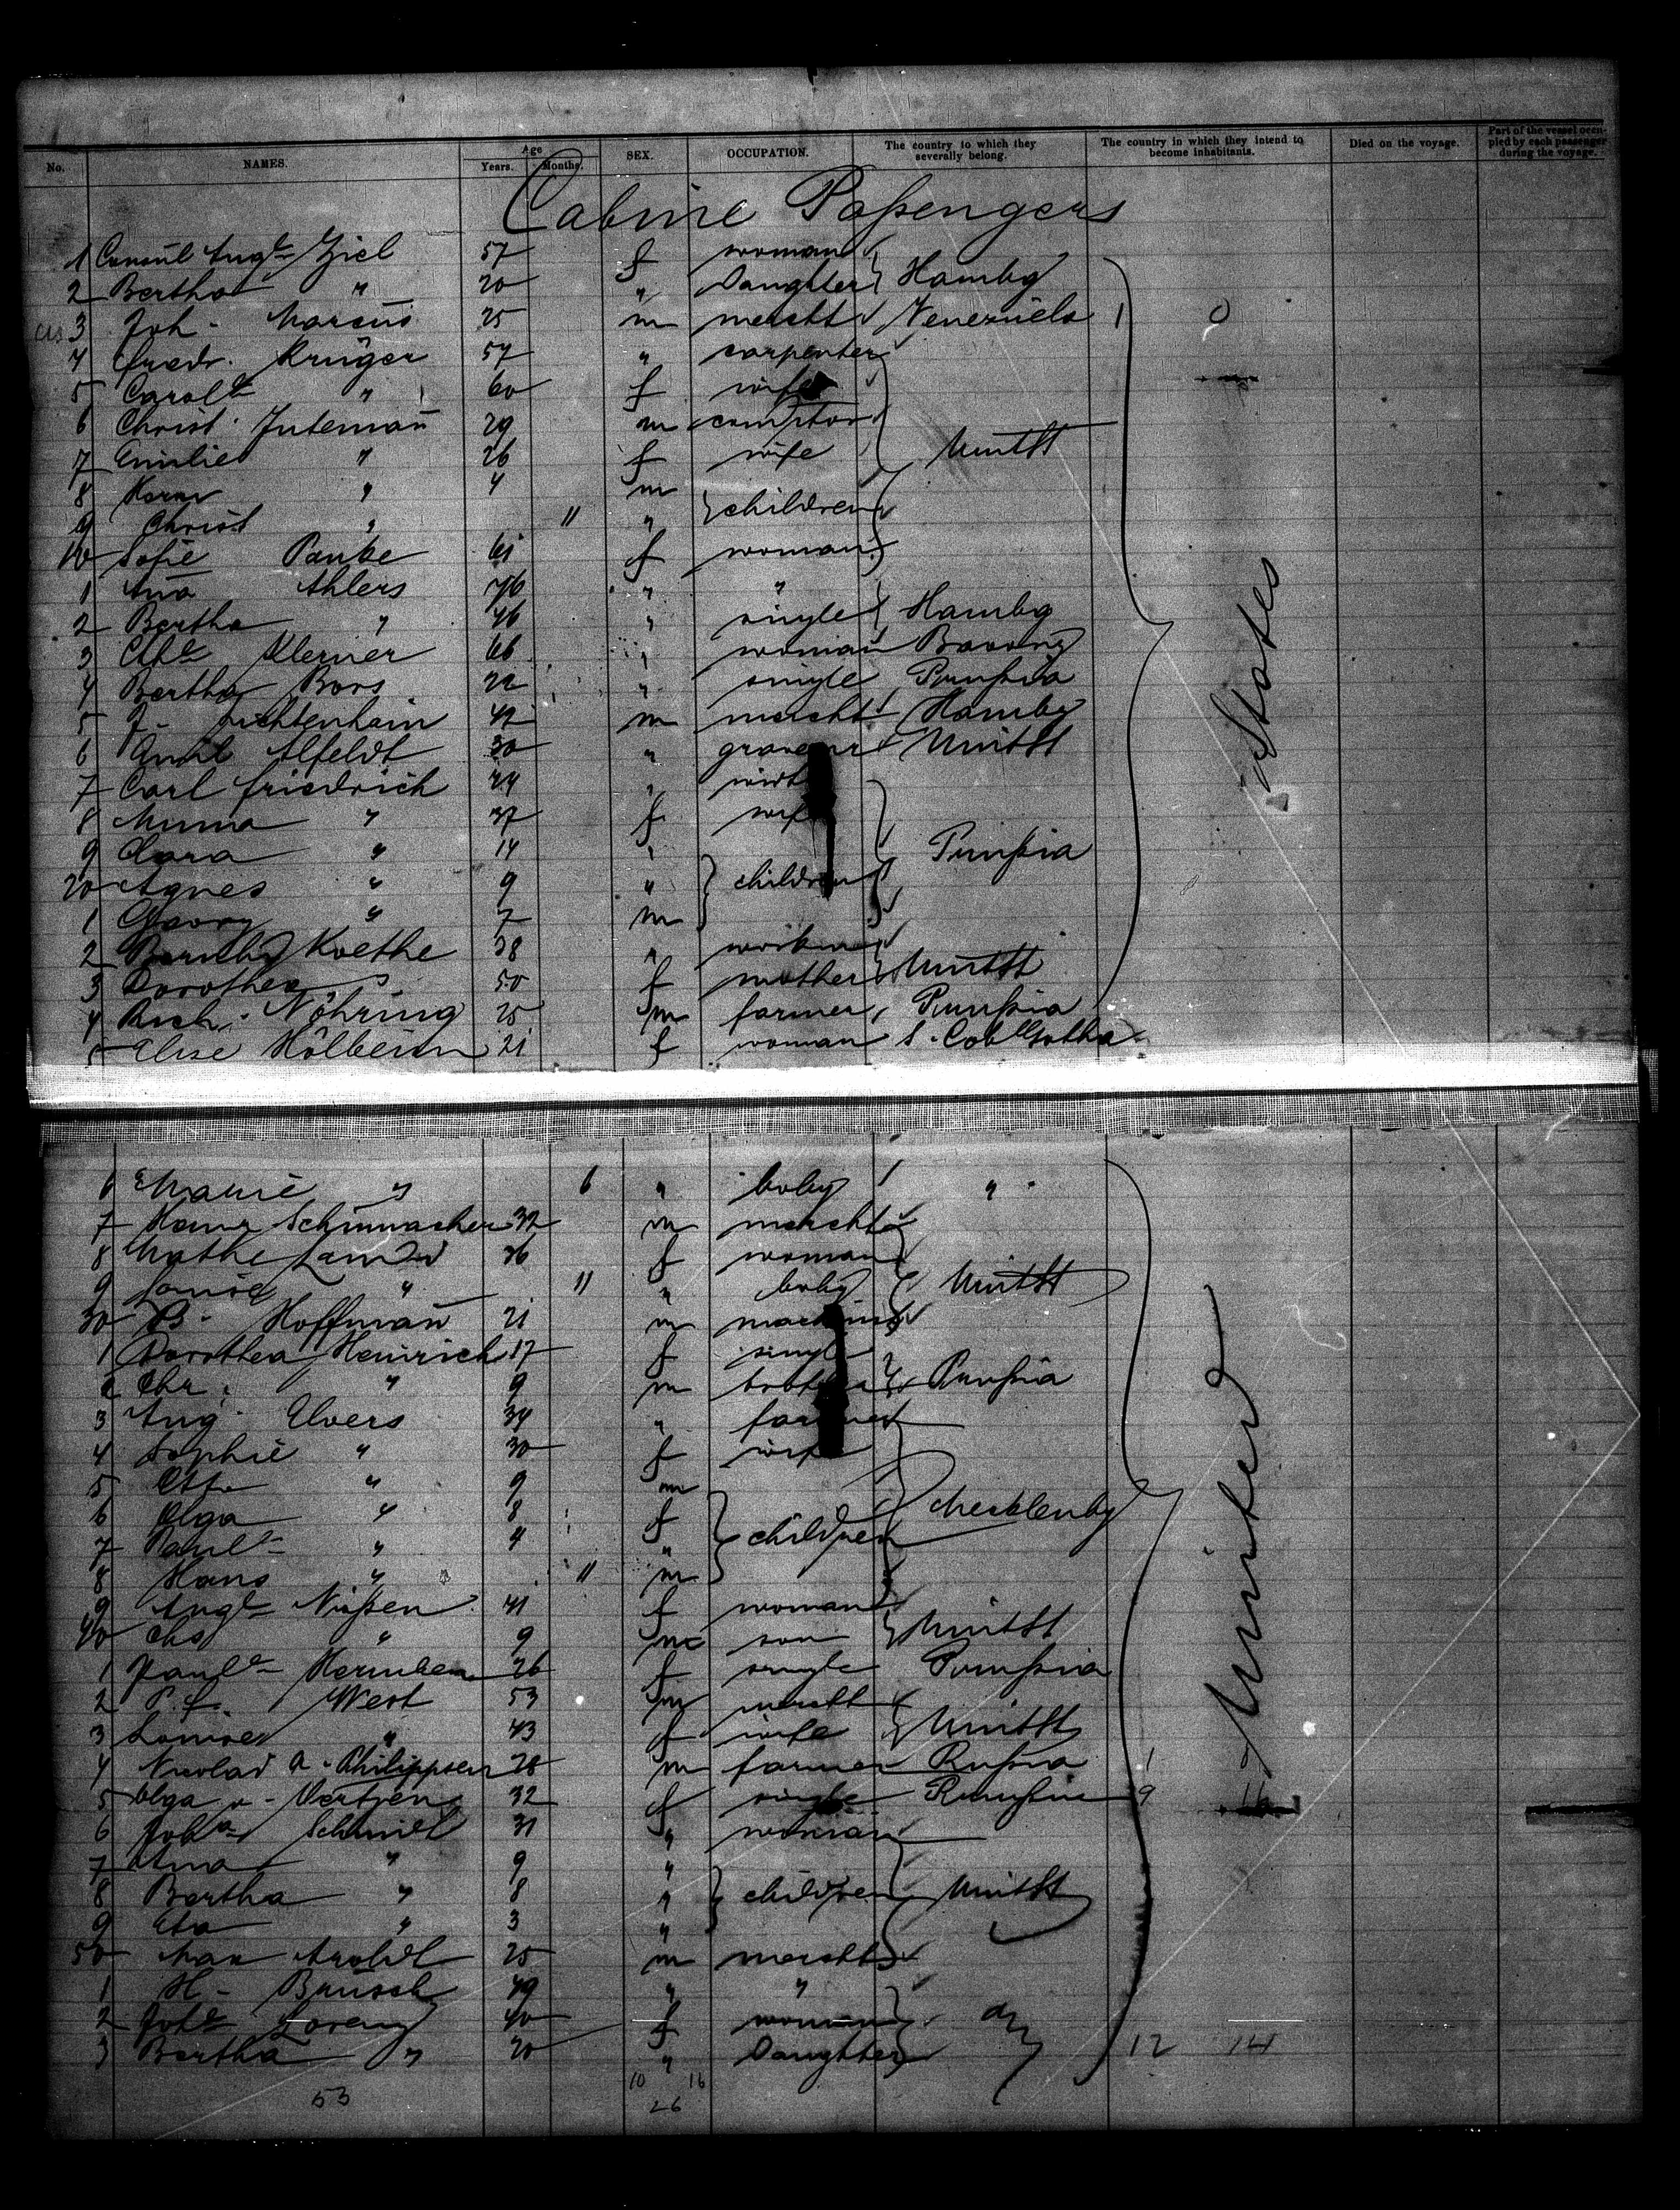 No. NAMES. Age Years. Months. SEX. OCCUPATION. The country to which they severally belong. The country in which they intend to become inhabitants. Died on the voyage. Part of the vessel occupied by each passenger during the voyage.
Cabine Paßengers
1 Consul Augte Ziel 57 f woman
2 Bertha " 20 " Daughter Hambg
3 Joh. Marcus 25 m mercht Venezuela 1 0
4 Fredr. Krüger 57 " carpenter
5 Carole " 60 f wife
6 Christ. Juteman̄ 29 m
7 Emilie " 26 f wife UnitSt
8 Herm " 4 m
9 Christ " 11 " children
10 Sofie Panke 61 f woman
1 An̄a Ahlers 76 " "
2 Bertha " 46 " single Hambg
3 Kleiner 66 " woman
4 Bertha Bors 22 " single Prußia
5 J. Lichtenhain 42 m mercht Hambg
6 Emil Alfeldt 30 " UnitSt
7 Carl Friedrich 44 "
8 Minna " 37 f wife
9 Clara " 14 " Prußia
20 Agnes " 9 " children
1 Georg " 7 m
2 Koethe 38 "
3 Dorothea " 50 mother UnitSt
4 Rich. Nöhring 25 m farmer Prußia
5 Elise Hölbein 21 f woman S. CobGotha
6 Marie " 6 " baby "
7 Schumacher 32 m mercht
8 36 f woman
9 Louise " 11 " baby UnitSt
30 B. Hoffman̄ 21 m machinist
1 Dorothea Heinrich 17 f single
2 Chr. " 9 m Prußia
3 Aug. Elvers 34 " farmer
4 Sophie " 30 f wife
5 Otto " 9 m
6 Olga " 8 f Mecklenbg
7 Paule " 4 " children
8 Hans " 11 m
9 Augte Nißen 41 f woman
40 Chs " 9 m son UnitSt
1 Paule 26 f single Prußia
2 P. F. West 53 m mercht
3 Louise " 43 f wife UnitSt
4 Nicolai A. Philippsen 28 m farmer Rußia 1
5 Olga v. Oertzen 32 f single Prußia 9 16
6 Joha Schmidt 31 " woman
7 An̄a " 9 "
8 Bertha " 8 " children UnitSt
9 Eta " 3 "
50 Max Aroldt 25 m mercht
1 H. Baüsch 49 " "
2 Lorenz 40 f woman
3 Bertha " 20 " Daughter 12 14
10 16
53 26
United States